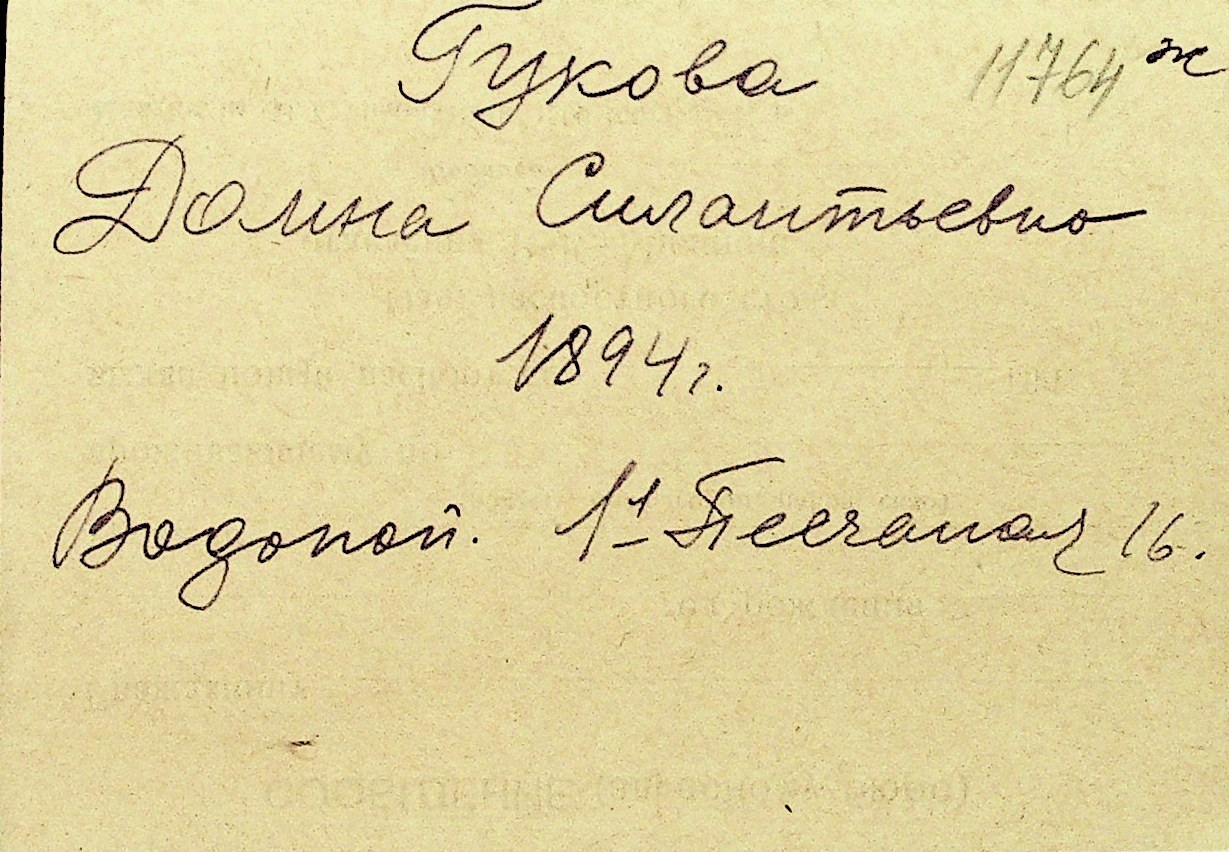 Гукова 11764 ж
Домна Силантьевна
1894 г.
Водопой. 1-я Песчаная 16.